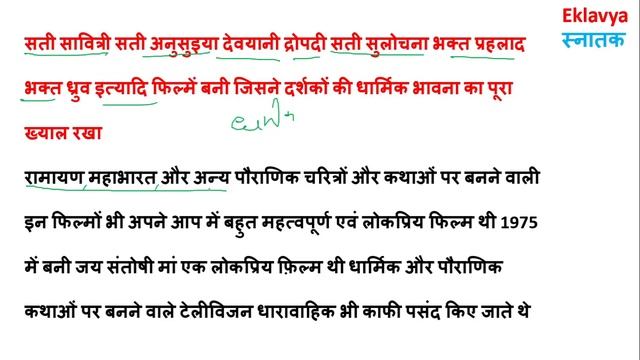 Eklavya
स्नातक
सती सावित्री सती अनुसुइया देवयानी द्रोपदी सती सुलोचना भक्त प्रहलाद
भक्त ध्रुव इत्यादि फिल्में बनी जिसने दर्शकों की धार्मिक भावना का पूरा
ख्याल रखा
रामायण महाभारत और अन्य पौराणिक चरित्रों और कथाओं पर बनने वाली
इन फिल्मों भी अपने आप में बहुत महत्वपूर्ण एवं लोकप्रिय फिल्म थी 1975
में बनी जय संतोषी मां एक लोकप्रिय फ़िल्म थी धार्मिक और पौराणिक
कथाओं पर बनने वाले टेलीविजन धारावाहिक भी काफी पसंद किए जाते थे